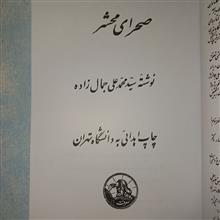 صحرای محشر
نوشته سید محمد علی جمال زاده
چاپ اهدائی به دانشگاه تهران